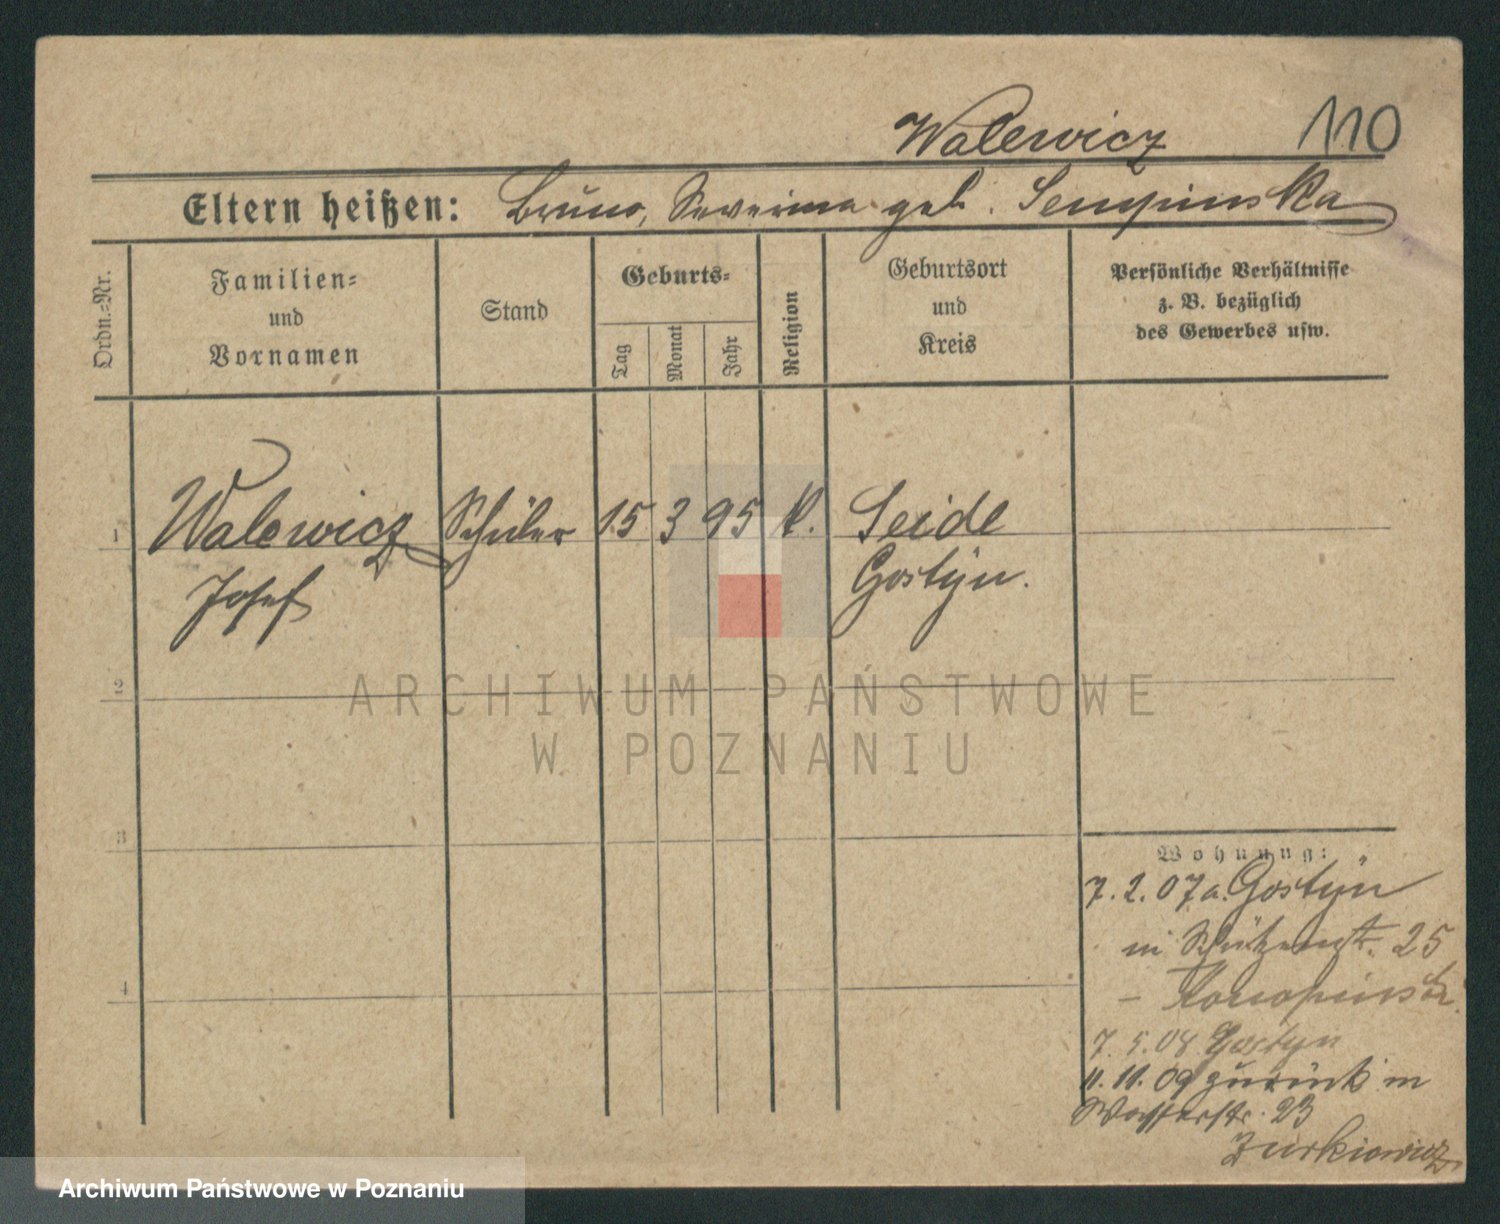 Walewicz 110
Eltern heißen: Bruno, Severina geb. Sempinska
Ordn.=Nr.
Familien=
und
Vornamen
Stand
Geburts=
Tag
Monat
Jahr
Religion
Geburtsort
und
Kreis
Persönliche Verhältnisse
z. B. bezüglich
des Gewerbes usw.
1 Walewicz Schüler 15 3 95 k. Seide
Josef Gostyn.
2
ARCHIWUM PAŃSTWOWE
W POZNANIU
3
Wohnung:
7. 2. 07 a. Gostyn
in Schützenstr. 25
4
7. 5. 08 Gostyn
11. 11. 09 zurück in
Wasserstr. 23
Zurkiewicz
Archiwum Państwowe w Poznaniu